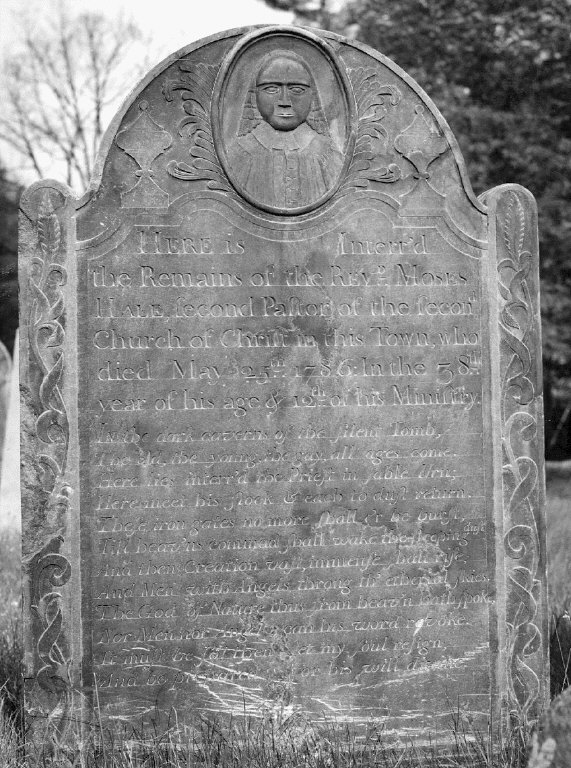 HERE is Interr'd
the Remains of the REVD. MOSES
HALE, ſecond Paſtor of the ſecond
Church of Chriſt in this Town, who
died May 25th. 1786: In the 38th.
year of his age & 12th. of his Miniſtry.
In the dark caverns of the ſilent Tomb,
The old, the young, the gay, all ages come.
Here lies interr'd the Prieſt in ſable Urn;
Here meet his flock & each to duſt return.
Theſe iron gates no more ſhall be burſt,
Till Heav'ns command ſhall wake the ſleeping duſt
And then Creation vaſt, immenſe, ſhall riſe
And Men with Angels throng th' etherial ſkies.
The God of Nature thus from Heav'n hath ſpoke,
Nor Men, nor can his word revoke.
It muſt be ſo, then let my ſoul reſign,
And be his will